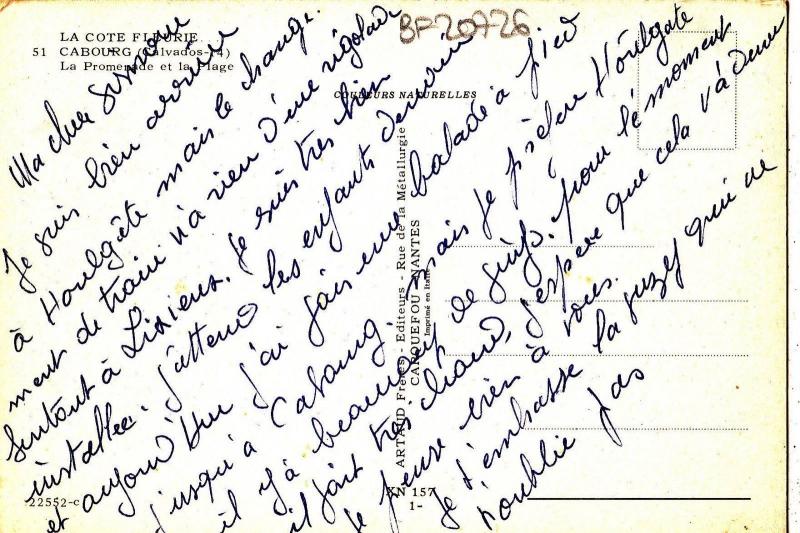 LA COTE FLEURIE
51 CABOURG (Calvados-14)
La Promenade et la Plage
BF-207-26
COULEURS NATURELLES
Ma chere Simone
Je suis bien arrivée
à Houlgâte mais le change-
ment de train n'a rien d'une rigolade
surtout à Lisieux. Je suis très bien
installée. J'attend les enfants demain
et aujourd'hui j'ai fais une balade à pied
jusqu'à Cabourg, mais je préfère Houlgate
il y a beaucoup de gens. pour le moment
il fait très chaud, j'espère que cela va durer
Je pense bien à vous.
Je t'embrasse la suzy qui ne
t'oublie pas
ARTAUD Frères - Editeurs - Rue de la Métallurgie
CARQUEFOU - NANTES
Imprimé en Italie
22552-c
KN 157
1-